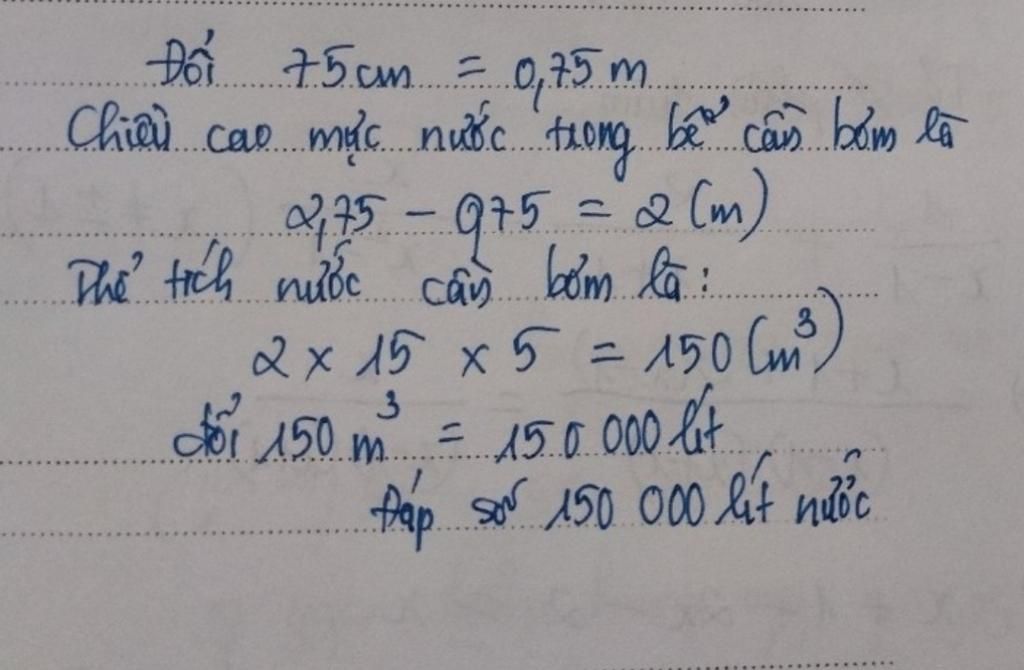 Đổi 75cm = 0,75m
Chiều cao mực nước trong bể cần bơm là
2,75 - 0,75 = 2 (m)
Thể tích nước cần bơm là:
2 x 15 x 5 = 150 (m³)
đổi 150 m³ = 150 000 lít
Đáp số 150 000 lít nước